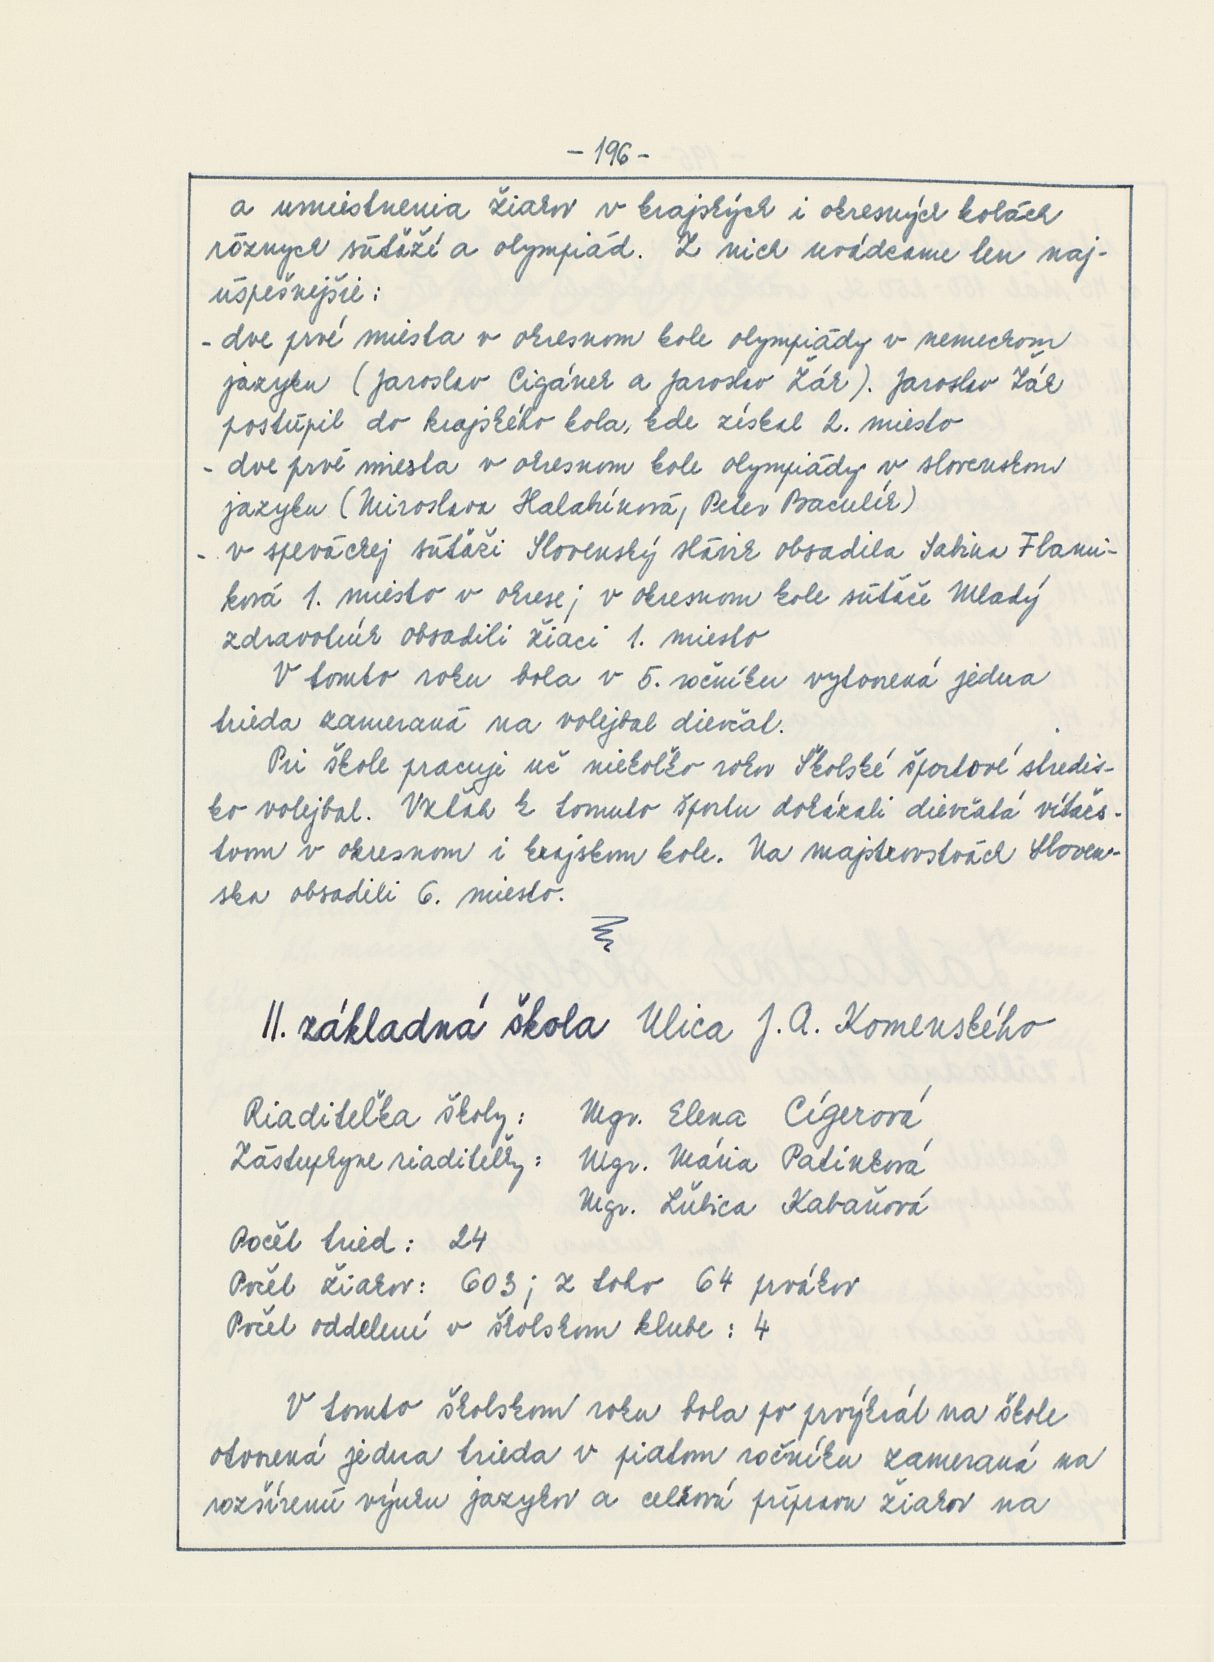 - 196 -
a umiestnenia žiakov v krajských i okresných kolách
rôznych súťaží a olympiád. Z nich uvádzame len naj-
úspešnejšie:
- dve prvé miesta v okresnom kole olympiády v nemeckom
jazyku (Jaroslav Cigánek a Jaroslav Žák). Jaroslav Žák
postúpil do krajského kola, kde získal 2. miesto
- dve prvé miesta v okresnom kole olympiády v slovenskom
jazyku (Miroslava Halahíková, Peter Baculík)
- v speváckej súťaži Slovenský slávik obsadila Sabina Flami-
ková 1. miesto v okrese; v okresnom kole súťaže Mladý
zdravotník obsadili žiaci 1. miesto
V tomto roku bola v 5. ročníku vytvorená jedna
trieda zameraná na volejbal dievčat.
Pri škole pracuje už niekoľko rokov Školské športové stredis-
ko volejbal. Vzťah k tomuto športu dokázali dievčatá víťazs-
tvom v okresnom i krajskom kole. Na majstrovstvách Sloven-
ska obsadili 6. miesto.
II. základná škola Ulica J. A. Komenského
Riaditeľka školy: Mgr. Elena Cígerová
Zástupkyne riaditeľky: Mgr. Mária Patinková
Mgr. Ľubica Kabaňová
Počet tried: 24
Počet žiakov: 603; z toho 64 prvákov
Počet oddelení v školskom klube: 4
V tomto školskom roku bola po prvýkrát na škole
otvorená jedna trieda v piatom ročníku zameraná na
rozšírenú výuku jazykov a celkovú prípravu žiakov na